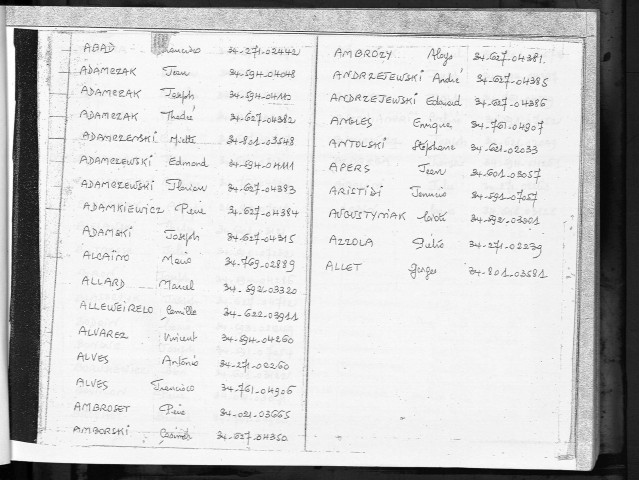 ABAD Francisco 34-271-02442
ADAMCZAK Jean 34-594-04048
ADAMCZAK Joseph
ADAMCZAK Thadé 34-627-04382
ADAMCZENSKI 34-801-03548
ADAMCZEWSKI Edmond 34-594-04111
ADAMCZEWSKI Florian 34-627-04383
ADAMKIEWICZ Pierre 34-627-04384
ADAMSKI Joseph 34-627-04315
ALCAÏNO Mario 34-769-02889
ALLARD Marcel 34-592-03320
ALLEWEIRELD Camille 34-622-03911
ALVAREZ Vincent 34-594-04260
ALVES António 34-271-02260
ALVES Francisco 34-761-04906
AMBROSET Pierre 34-021-03665
AMBORSKI Casimir 34-627-04350
AMBROZY Aloys 34-627-04381
ANDRZEJEWSKI André 34-627-04385
ANDRZEJEWSKI Edouard 34-627-04386
ANGLES Enrique 34-761-04907
ANTOLSKI Stéphane 34-621-02033
APERS Jean 34-601-03057
ARISTIDI 34-591-07057
AUGUSTYNIAK 34-592-03301
AZZOLA 34-271-02239
ALLET Georges 34-801-03581